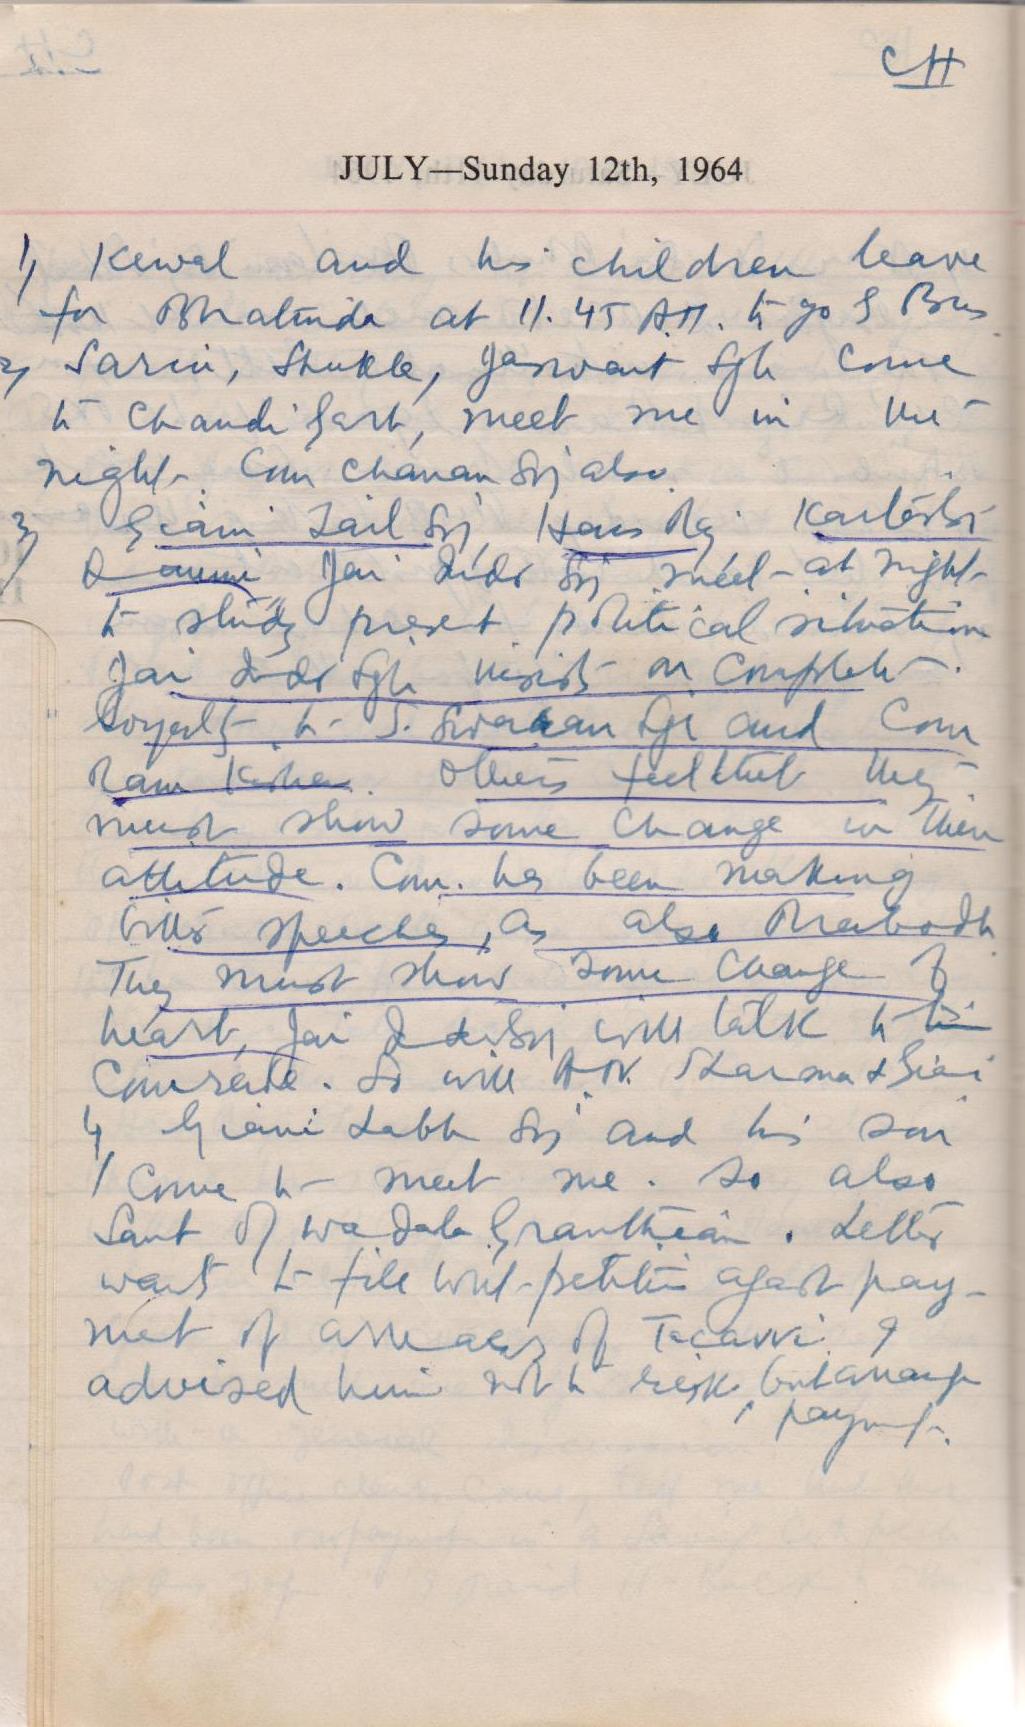 CH
JULY—Sunday 12th, 1964
1) Kewal and his children leave
for Bhatinda at 11.45 A.M. to go by Bus
2) Sarin, Shukla, Jaswant Sgh come
to Chandigarh, meet me in the
night. Com Chanan Sgj also.
3) Giani Zail Sgj, Hans Raj
Jai Inder Sgj meet at night
to study present political situation
Jai Inder Sgh insists on complete
loyalty to S. Swaran Sgh and Com
Ram Kishan. Others feel that they
must show some change in their
attitude. Com. has been making
bitter speeches, as also Prabodh
They must show some change of
heart. Jai Inder Sgj will talk to
Comrade. So will A.N. Sharma &
4) Giani Labh Sgj and his son
come to meet me. So also
Sant of Wadala Granthian. Letter
wants to file writ-petition against pay-
ment of arrears of Tacavvi. I
advised him not to risk, but arrange
payment.